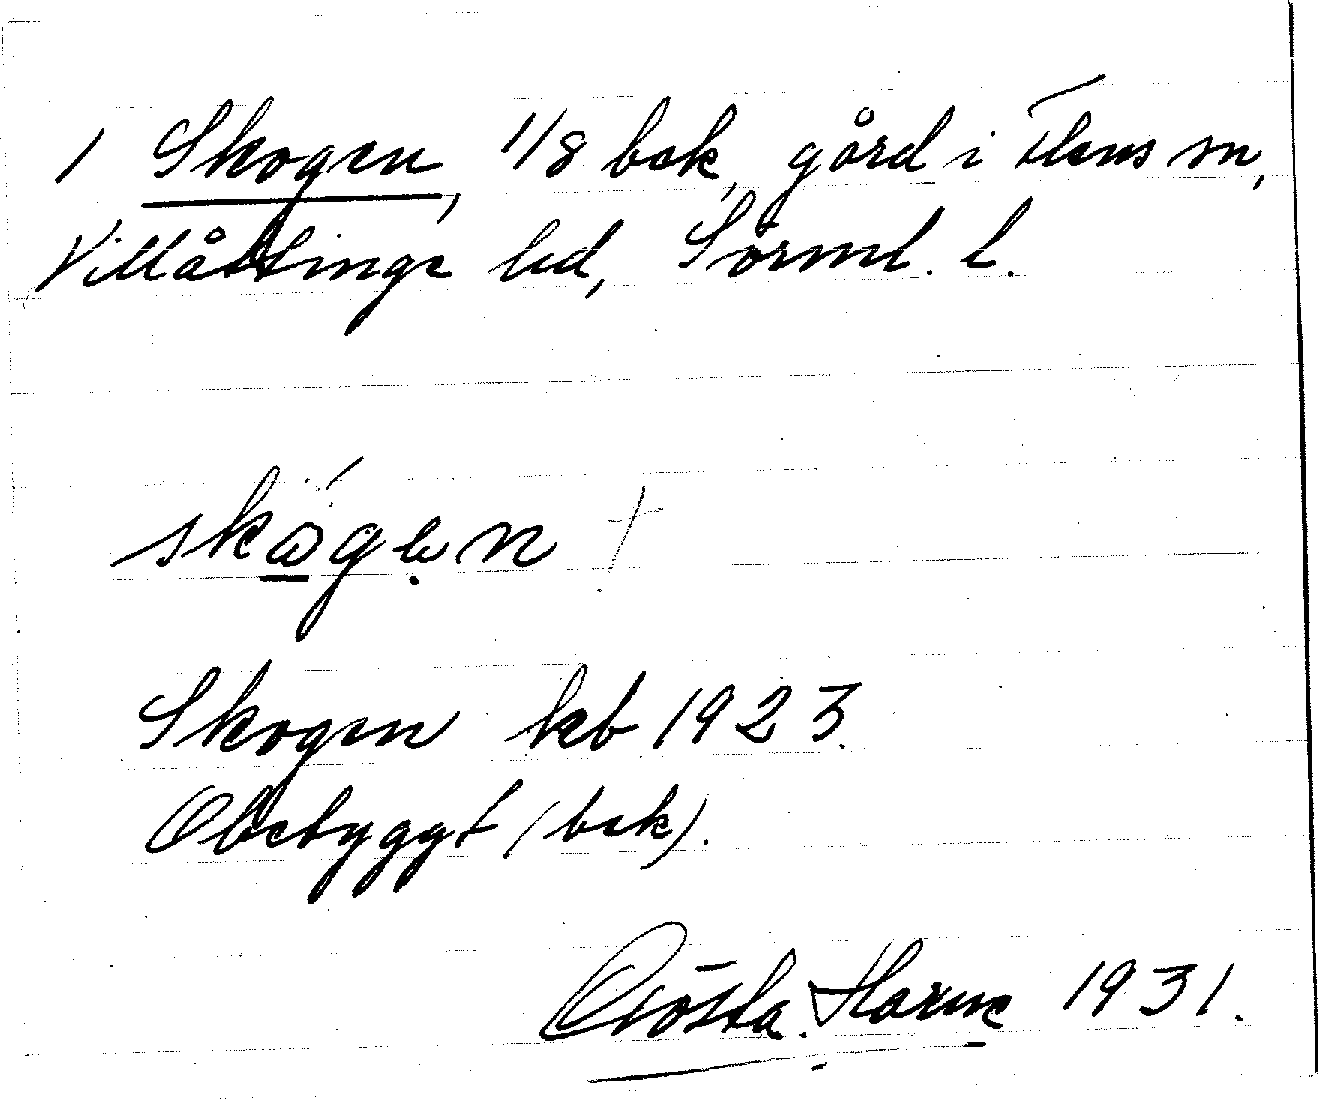 1 Skogen, 1/8 bek, gård i Flens sn,
Villåttinge hd, Sörml. l.
skógen
Skogen kb 1923.
Obebyggt (bek).
Gösta
1931.